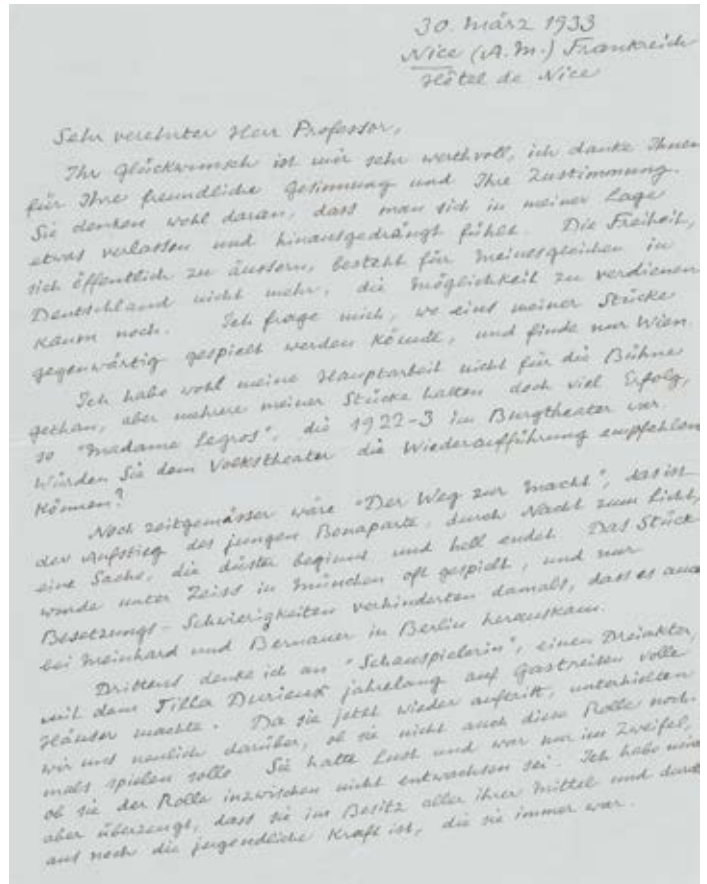 30. März 1933
Nice (A.M.) Frankreich
Hôtel de Nice
Sehr verehrter Herr Professor,
Ihr Glückwunsch ist mir sehr werthvoll, ich danke Ihnen
für Ihre freundliche Gesinnung und Ihre Zustimmung.
Sie denken wohl daran, dass man sich in meiner Lage
etwas verlassen und hinausgedrängt fühlt. Die Freiheit,
sich öffentlich zu äussern, besteht für meinesgleichen in
Deutschland nicht mehr, die Möglichkeit zu verdienen
kaum noch. Ich frage mich, wo eins meiner Stücke
gegenwärtig gespielt werden könnte, und finde nur Wien.
Ich habe wohl meine Hauptarbeit nicht für die Bühne
gethan, aber mehrere meiner Stücke hatten doch viel Erfolg,
so "Madame Legros", die 1922-3 im Burgtheater war.
Würden Sie dem Volkstheater die Wiederaufführung empfehlen
können?
Noch zeitgemässer wäre "Der Weg zur Macht", das ist
der Aufstieg des jungen Bonaparte, durch Nacht zum Licht,
eine Sache, die düster beginnt und hell endet. Das Stück
wurde unter Zeiss in München oft gespielt, und nur
Besetzungs-Schwierigkeiten verhinderten damals, dass es auch
bei Meinhard und Bernauer in Berlin herauskam.
Drittens denke ich an "Schauspielerin", einen Dreiakter,
mit dem Tilla Durieux jahrelang auf Gastreisen volle
Häuser machte. Da sie jetzt wieder auftritt, unterhielten
wir uns neulich darüber, ob sie nicht auch diese Rolle noch-
mals spielen solle. Sie hatte Lust und war nur im Zweifel,
ob sie der Rolle inzwischen nicht entwachsen sei. Ich habe mich
aber überzeugt, dass sie im Besitz aller ihrer Mittel und
aus noch die jugendliche Kraft ist, die sie immer war.